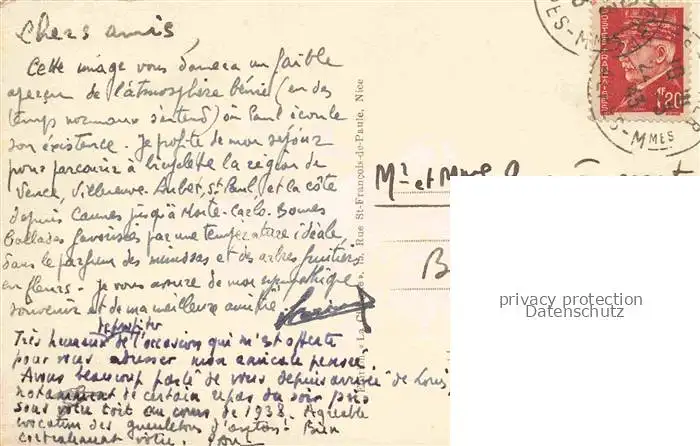 Chers amis,
Cette image vous donnera un faible
aperçu de l'atmosphère bénie (en des
temps normaux s'entend) où Paul écoule
son existence. Je profite de mon séjour
pour parcourir à bicyclette la région de
Vence, Villeneuve-Loubet, St Paul et la côte
depuis Cannes jusqu'à Monte-Carlo. Bonnes
ballades favorisées par une température idéale,
dans le parfum des mimosas et des arbres fruitiers
en fleurs. Je vous assure de mon sympathique
souvenir et de ma meilleure amitié
Très heureux de l'occasion qui m'est offerte
pour vous adresser mon amicale pensée.
Avons beaucoup parlé de vous depuis arrivée de Louis,
notamment de certain repas du soir pris
sous votre toit au cours de 1938. Agréable
évocation des gueuletons d'antan! Bien
cordialement vôtre. Paul
Rue St-François-de-Paule, Nice
Mr et Mme
B
1F20
privacy protection
Datenschutz